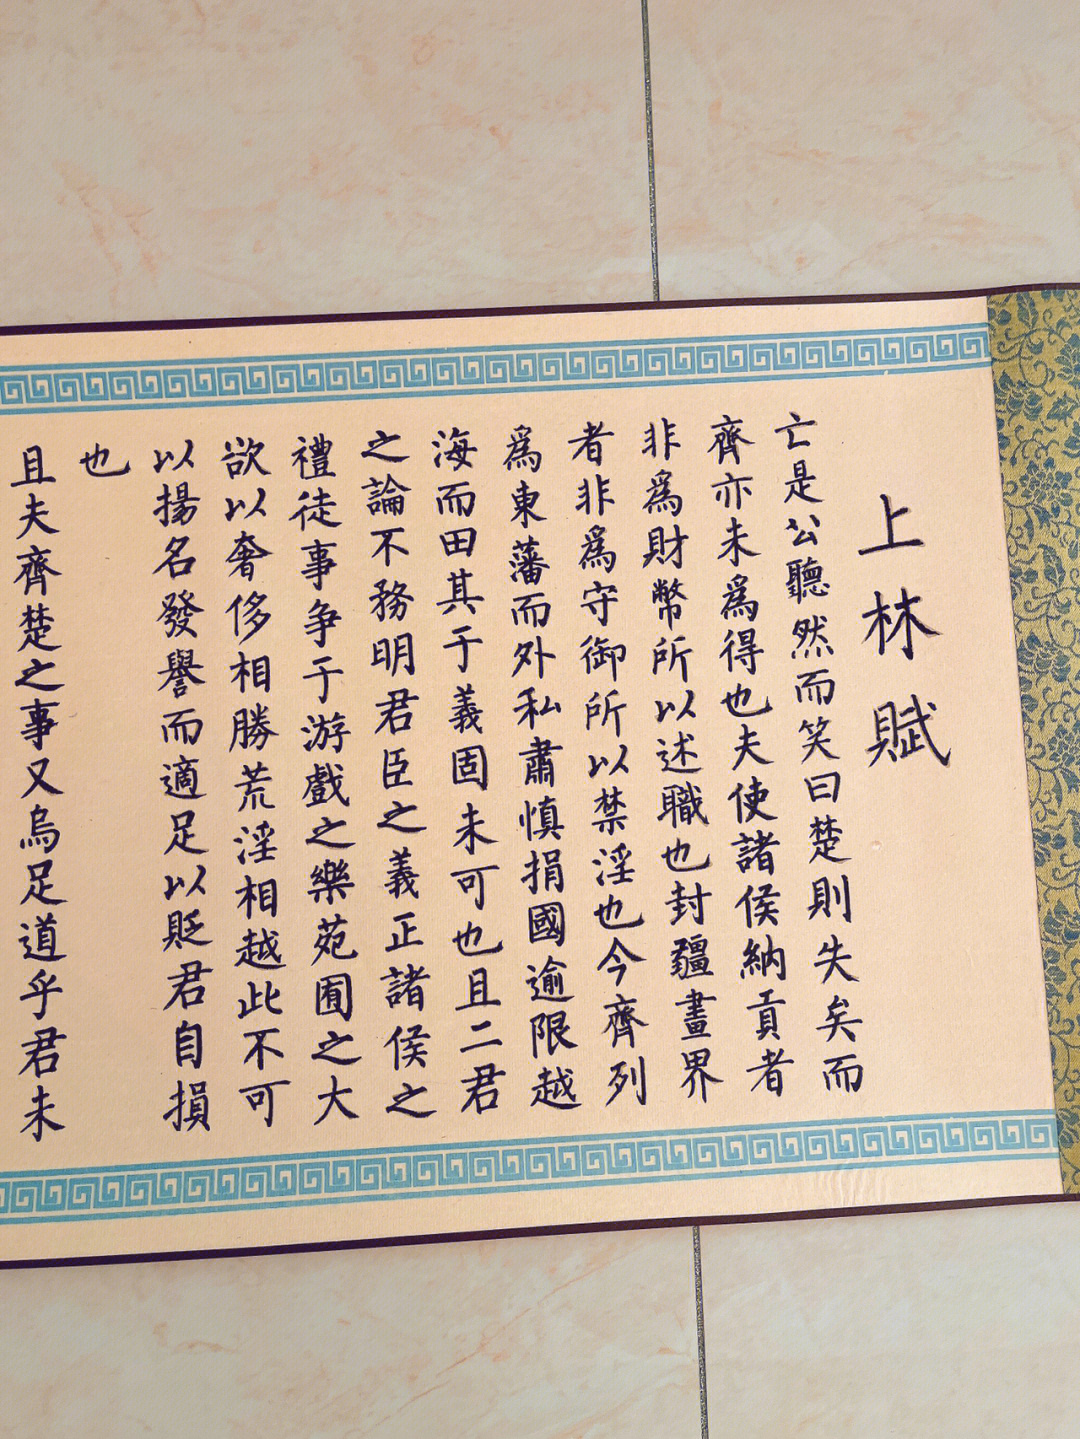 上林賦
亡是公聽然而笑曰楚則失矣而
齊亦未爲得也夫使諸侯納貢者
非爲財幣所以述職也封疆畫界
者非爲守御所以禁淫也今齊列
爲東藩而外私肅慎捐國逾限越
海而田其于義固未可也且二君
之論不務明君臣之義正諸侯之
禮徒事争于游戲之樂苑囿之大
欲以奢侈相勝荒淫相越此不可
以揚名發譽而適足以貶君自損
也
且夫齊楚之事又烏足道乎君未